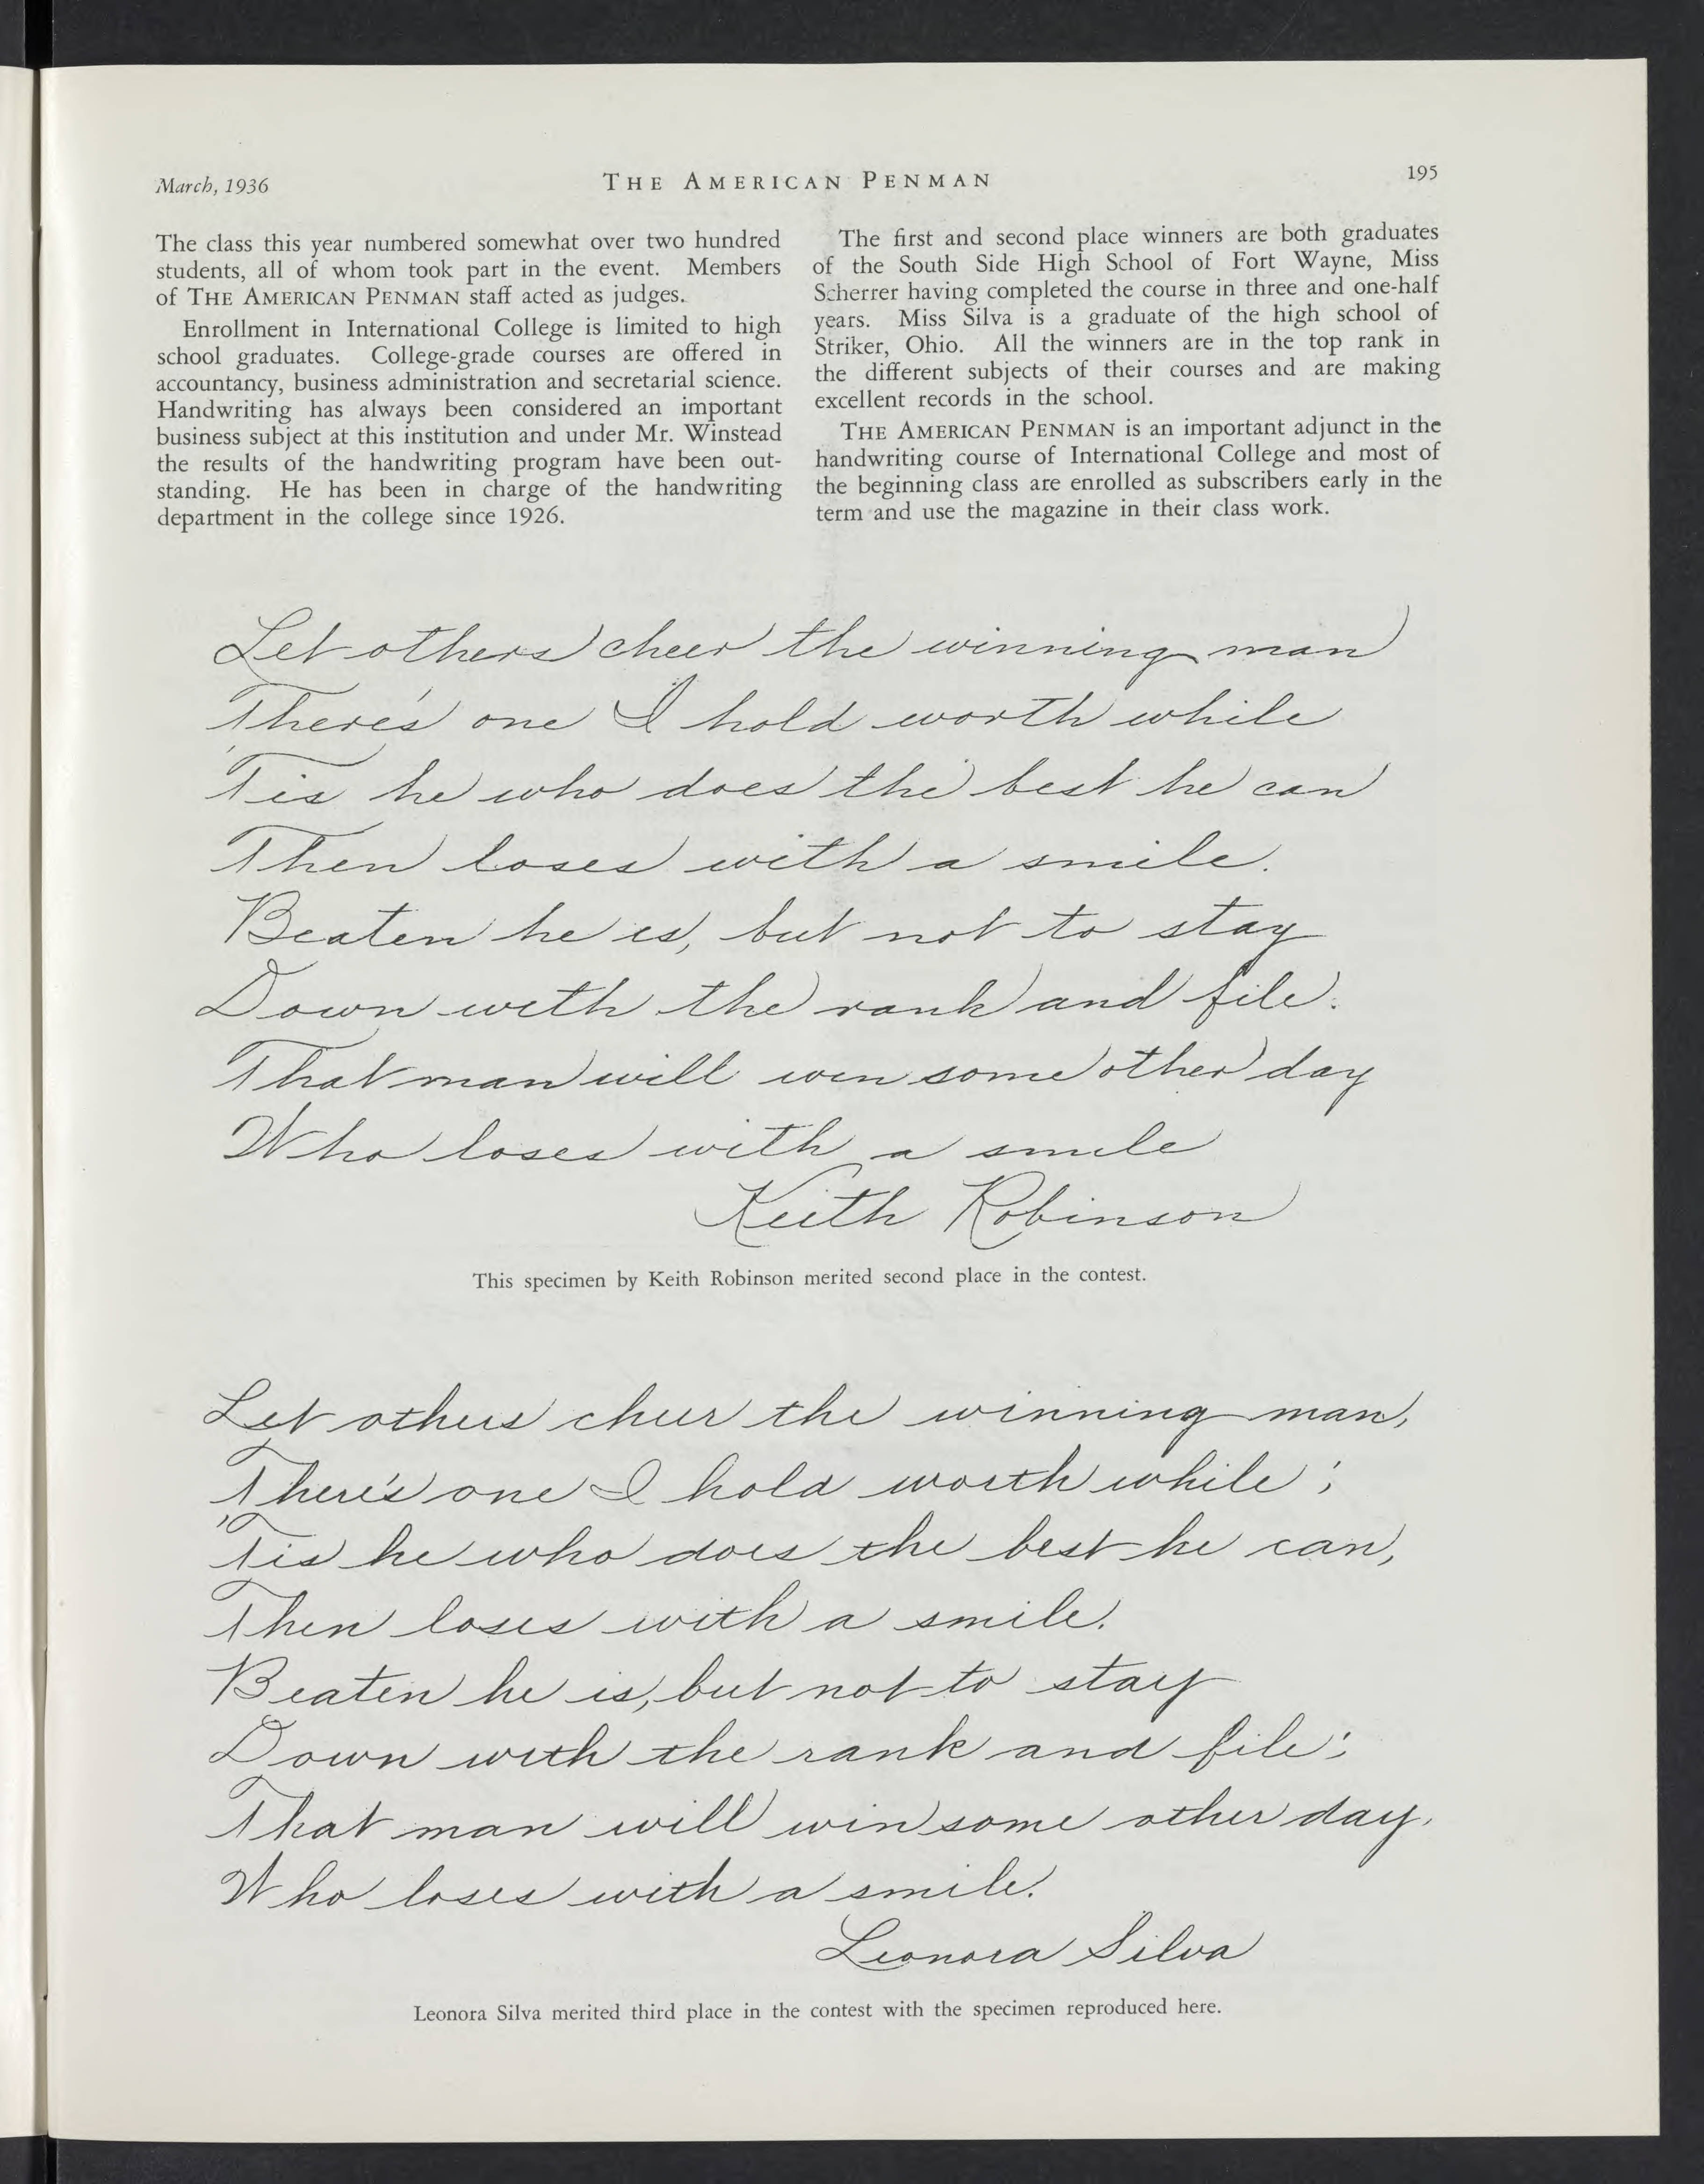 March, 1936
THE AMERICAN PENMAN
195
The class this year numbered somewhat over two hundred
students, all of whom took part in the event. Members
of THE AMERICAN PENMAN staff acted as judges.
Enrollment in International College is limited to high
school graduates. College-grade courses are offered in
accountancy, business administration and secretarial science.
Handwriting has always been considered an important
business subject at this institution and under Mr. Winstead
the results of the handwriting program have been out-
standing. He has been in charge of the handwriting
department in the college since 1926.
The first and second place winners are both graduates
of the South Side High School of Fort Wayne, Miss
Scherrer having completed the course in three and one-half
years. Miss Silva is a graduate of the high school of
Striker, Ohio. All the winners are in the top rank in
the different subjects of their courses and are making
excellent records in the school.
THE AMERICAN PENMAN is an important adjunct in the
handwriting course of International College and most of
the beginning class are enrolled as subscribers early in the
term and use the magazine in their class work.
Let others cheer the winning man
There's one I hold worth while
'Tis he who does the best he can
Then loses with a smile.
Beaten he is, but not to stay
Down with the rank and file.
That man will win some other day
Who loses with a smile
Keith Robinson
This specimen by Keith Robinson merited second place in the contest.
Let others cheer the winning man,
There's one I hold worth while;
'Tis he who does the best he can,
Then loses with a smile.
Beaten he is, but not to stay
Down with the rank and file;
That man will win some other day,
Who loses with a smile.
Leonora Silva
Leonora Silva merited third place in the contest with the specimen reproduced here.